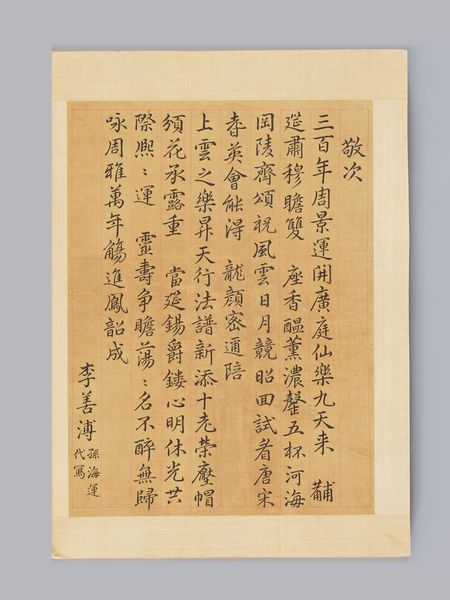 敬次
三百年周景運開廣庭仙樂九天来 黼
筵肅穆瞻雙 座香醖薰濃罄五杯河海
岡陵齊頌祝風雲日月競昭回試看唐宋
耆英會能得 龍顔密邇陪
上雲之樂昇天行法譜新添十老榮壓帽
頒花承露重 當筵錫爵鏤心明休光共
際熈〻運 靈壽争瞻蕩〻名不醉無歸
咏周雅萬年觴進鳳韶成
李善溥
孫海運
代寫